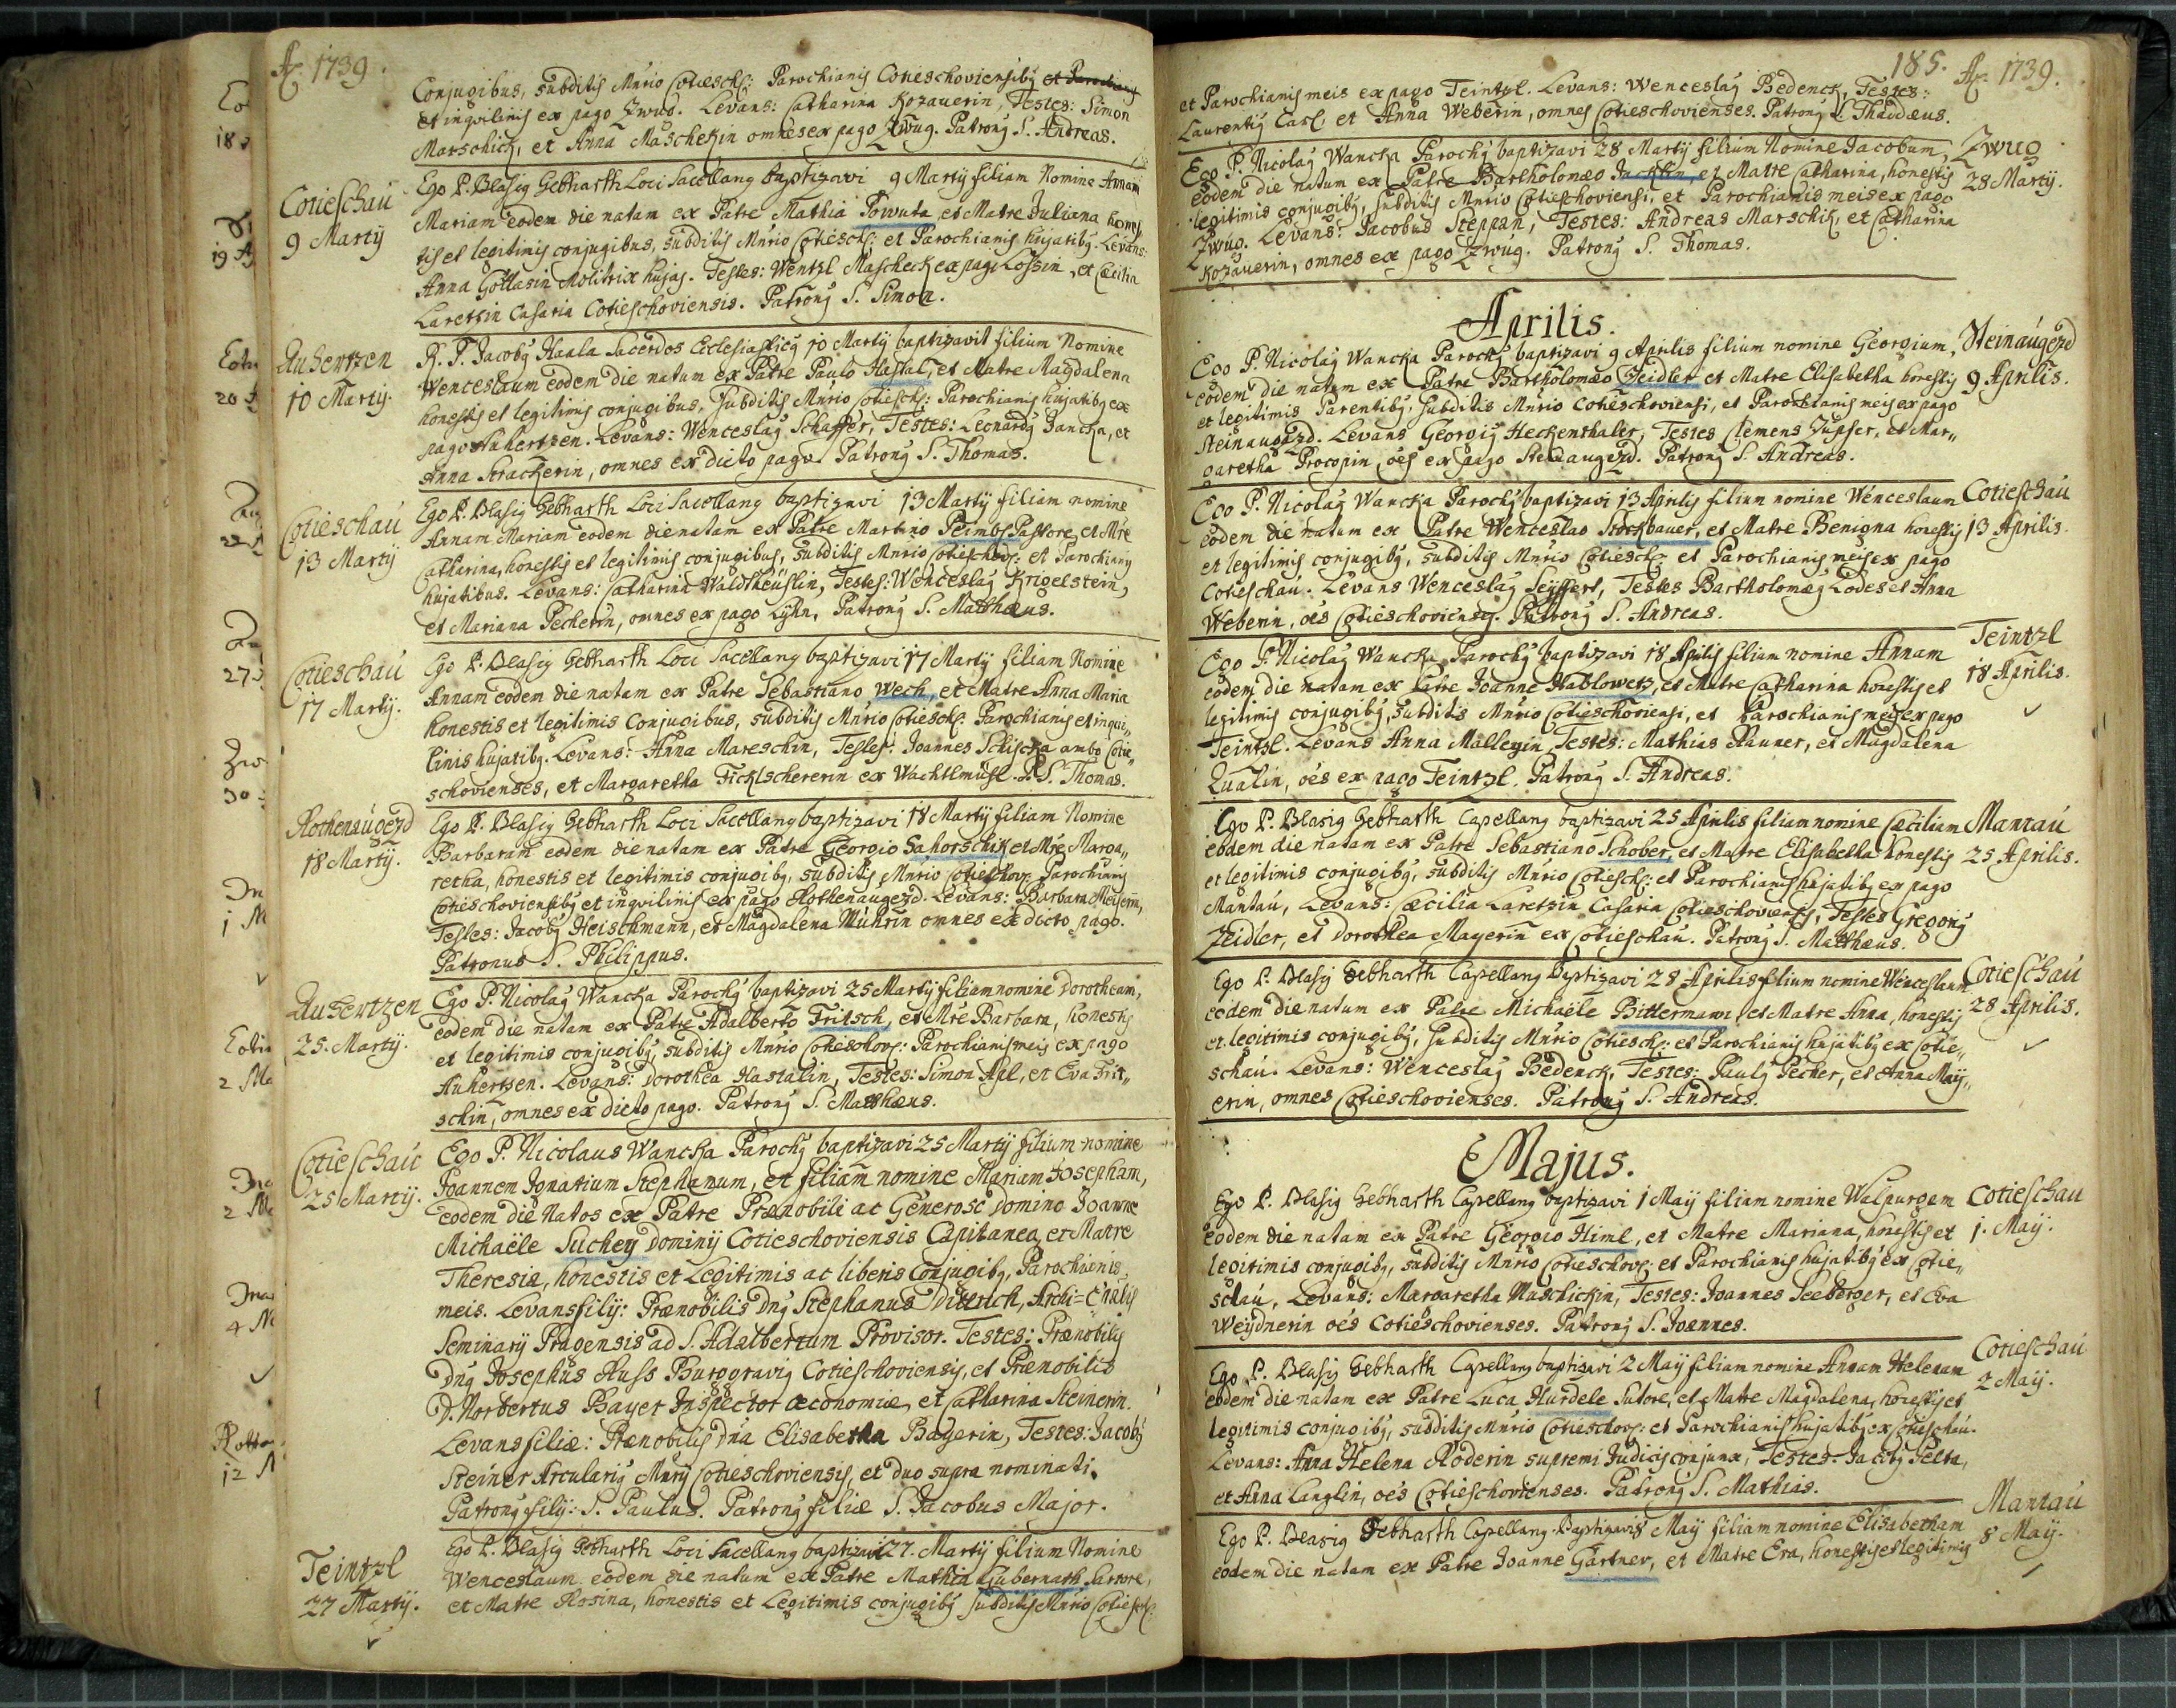 Aō. 1739.
Conjugibus, subditis Mnrio Cotiesch: Parochianis Cotieschoviensibg et Parochianis
et inqvilinis ex pago Zwug. Levans: Catharina Kozauerin, Testes: Simon
Marschick, et Anna Maschekin omnes ex pago Zwug. Patrong S. Andreas.
Cotieschau
9 Martij
Ego P. Blasig Gebharth Loci Sacellang baptizavi 9 Martij filiam Nomine Annam
Mariam eodem die natam ex Patre Mathia Powuta, et Matre Juliana hones
tis et legitimis conjugibus, subditis Mnrio Cotiesch: et Parochianis hujatibg. Levans:
Anna Gottasin Molitrix hujas. Testes: Wentzl Mascheck ex pago Lossin, et Cæcilia
Laretzin Casaria Cotieschoviensis. Patrong S. Simon.
Auhertzen
10 Martij.
R. P. Jacobg Haala Sacerdos Ecclesiasticg 10 Martij baptizavit filium Nomine
Wenceslaum eodem die natum ex Patre Paulo Hastal, et Matre Magdalena
honestis et legitimis conjugibus, subditis Mnrio Cotiesch: Parochianis hujatibg ex
pago Auhertzen. Levans: Wenceslag Schaffer, Testes: Leonardg Jancka, et
Anna Strackerin, omnes ex dicto pago. Patrong S. Thomas.
Cotieschau
13 Martij
Ego P. Blasig Gebharth Loci Sacellang baptizavi 13 Martij filiam nomine
Annam Mariam eodem die natam ex Patre Martino Peimbs Pastore, et Mre
Catharina, honestis et legitimis conjugibus, subditis Mnrio Cotieschov: et Parochianis
hujatibus. Levans: Catharina Waldtheuslin, Testes: Wenceslag Krigelstein,
et Mariana Pecherin, omnes ex pago Lyhn. Patrong S. Mathæus.
Cotieschau
17 Martij.
Ego P. Blasig Gebharth Loci Sacellang baptizavi 17 Martij filiam Nomine
Annam eodem die natam ex Patre Sebastiano Wech, et Matre Anna Maria
honestis et legitimis conjugibus, subditis Mnrio Cotiesch: Parochianis et inqui„
linis hujatibg. Levans: Anna Mareschin, Testes: Joannes Schischa ambo Cotie„
schovienses, et Margaretha Ficklschererin ex Wachtlmühl. P. S. Thomas.
Rothenaugezd
18 Martij.
Ego P. Blasig Gebharth Loci Sacellang baptizavi 18 Martij filiam Nomine
Barbaram eodem die natam ex Patre Georgio Sahorschik et Mre Marga„
retha, honestis et legitimis conjugibg, subditis Mnrio Cotieschov: Parochianis
Cotieschoviensibg et inqvilinis ex pago Rothenaugezd. Levans: Barbara Meiserin,
Testes: Jacobg Heischmann, et Magdalena Mührin omnes ex dicto pago.
Patronus S. Philippus.
Auhertzen
25. Martij.
Ego P. Nicolag Wancka Parochg baptizavi 25 Martij filiam nomine Dorotheam,
eodem die natam ex Patre Adalberto Fritsch, et Mre Barbara, honestis
et legitimis conjugibg, subditis Mnrio Cotieschov: Parochianis meis ex pago
Auhertzen. Levans: Dorothea Hastalin, Testes: Simon Apl, et Eva Frit„
schin, omnes ex dicto pago. Patrong S. Mathæus.
Cotieschau
25 Martij.
Ego P. Nicolaus Wancka Parochg baptizavi 25 Martij filium nomine
Joannem Ignatium Stephanum, et filiam nomine Mariam Josepham,
eodem die Natos ex Patre Prænobili ac Generoso Domino Joanne
Michaële Suchey Dominij Cotieschoviensis Capitaneo, et Matre
Theresia, honestis et Legitimis ac liberis Conjugibg, Parochianis
meis. Levans filij: Prænobilis Dng Stephanus Dittrich, Archi=
Seminarij Pragensis ad S. Adalbertum Provisor. Testes: Prænobilis
Dng Josephus Russ Burggravig Cotieschoviensis, et Prænobilis
D. Norbertus Bayer Inspector œconomiæ, et Catharina Steinerin.
Levans filiæ: Prænobilis Dna Elisabetha Bayerin, Testes: Jacobg
Steiner Arcularig Mnrij Cotieschoviensis, et duo supra nominati.
Patrong filij: S. Paulus. Patrong filiæ S. Jacobus Major.
Teintzl
27 Martij.
Ego P. Blasig Gebharth Loci Sacellang baptizavi 27. Martij filium Nomine
Wenceslaum eodem die natum ex Patre Mathia Gubernath Sartore,
et Matre Rosina, honestis et Legitimis conjugibg subditis Mnrio Cotiesch:
185. Aō. 1739.
et Parochianis meis ex pago Teintzl. Levans: Wenceslag Bedenck, Testes:
Laurentig Carl, et Anna Weberin, omnes Cotieschovienses. Patrong S. Thaddæus.
Zwug
28 Martij.
Ego P. Nicolag Wancka Parochg baptizavi 28 Martij filium Nomine Jacobum,
eodem die natum ex Patre Bartholomæo Jacklin, et Matre Catharina, honestis
legitimis conjugibg, subditis Mnrio Cotieschoviensi, et Parochianis meis ex pago
Zwug. Levans: Jacobus Steppan, Testes: Andreas Marschik, et Catharina
Kozauerin, omnes ex pago Zwug. Patrong S. Thomas.
Aprilis.
Steinaugezd
9 Aprilis.
Ego P. Nicolag Wancka Parochg baptizavi 9 Aprilis filium nomine Georgium,
eodem die natum ex Patre Bartholomæo Zeidler et Matre Elisabetha honestis
et legitimis Parentibg, subditis Mnrio Cotieschoviensi, et Parochianis meis ex pago
Steinaugezd. Levans Georgig Heckenthaler, Testes Clemens Jupser, et Mar„
garetha Procopin, oēs ex pago Steinaugezd. Patrong S. Andreas.
Cotieschau
13 Aprilis.
Ego P. Nicolag Wancka Parochg baptizavi 13 Aprilis filium nomine Wenceslaum
eodem die natum ex Patre Wenceslao Stockbauer, et Matre Benigna honestis
et legitimis conjugibg, subditis Mnrio Cotiesch: et Parochianis meis ex pago
Cotieschau. Levans Wenceslag Seyffert, Testes Bartholomæg Lodes et Anna
Weberin, oēs Cotieschovienses. Patrong S. Andreas.
Teintzl
18 Aprilis.
Ego P. Nicolag Wancka Parochg baptizavi 18 Aprilis filiam nomine Annam
eodem die natam ex Patre Joanne Hablowetz, et Matre Catharina honestis et
legitimis conjugibg, subditis Mnrio Cotieschoviensi, et Parochianis meis ex pago
Teintzl. Levans Anna Mallegin, Testes: Mathias Rauner, et Magdalena
Zualin, oēs ex pago Teintzl. Patrong S. Andreas.
Mantau
25 Aprilis.
Ego P. Blasig Gebharth Capellang baptizavi 25 Aprilis filiam nomine Cæciliam
eodem die natam ex Patre Sebastiano Schober, et Matre Elisabetha honestis
et legitimis conjugibg, subditis Mnrio Cotiesch: et Parochianis hujatibg ex pago
Mantau, Levans: Cæcilia Laretzin Casaria Cotieschoviensis, Testes Gregorig
Zeidler, et Dorothea Mayerin ex Cotieschau. Patrong S. Mathæus.
Cotieschau
28 Aprilis.
Ego P. Blasig Gebharth Capellang baptizavi 28 Aprilis filium nomine Wenceslaum
eodem die natum ex Patre Michaële Bittermann, et Matre Anna, honestis
et legitimis conjugibg, subditis Mnrio Cotiesch: et Parochianis hujatibg ex Cotie„
schau. Levans: Wenceslag Bedenck, Testes: Paulg Pecher, et Anna Maij„
erin, omnes Cotieschovienses. Patrong S. Andreas.
Majus.
Cotieschau
1. Maij.
Ego P. Blasig Gebharth Capellang baptizavi 1 Maij filiam nomine Walpurgam
eodem die natam ex Patre Georgio Himl, et Matre Mariana, honestis et
legitimis conjugibg, subditis Mnrio Cotieschov: et Parochianis hujatibg ex Cotie„
schau, Levans: Margaretha Maschickin, Testes: Joannes Seeberger, et Eva
Weydnerin oēs Cotieschovienses. Patrong S. Joannes.
Cotieschau
2 Maij.
Ego P. Blasig Gebharth Capellang baptizavi 2 Maij filiam nomine Annam Helenam
eodem die natam ex Patre Luca Hurdele Sutore, et Matre Magdalena, honestis et
legitimis conjugibg, subditis Mnrio Cotieschov: et Parochianis hujatibg ex Cotieschau.
Levans: Anna Helena Roderin supremi Judicis conjunx, Testes: Jacobg Pelta,
et Anna Langlin, oēs Cotieschovienses. Patrong S. Mathias.
Mantau
8 Maij.
Ego P. Blasig Gebharth Capellang Baptizavi 8 Maij filiam nomine Elisabetham
eodem die natam ex Patre Joanne Gärtner, et Matre Eva, honestis et legitimis